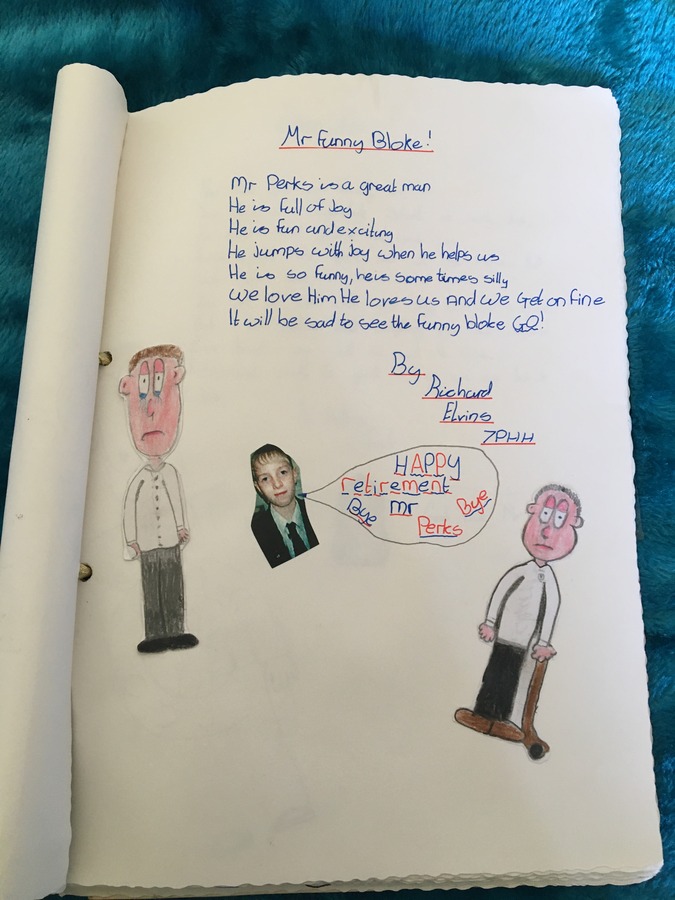 Mr Funny Bloke!
Mr Perks is a great man
He is full of Joy
He is fun and exciting
He jumps with joy when he helps us
He is so funny, he is some times silly
We love Him He loves us And we Get on fine
It will be sad to see the funny bloke GO!
By
Richard
Elvins
7PHH
HAPPY
retirement
Bye mr Bye
Perks